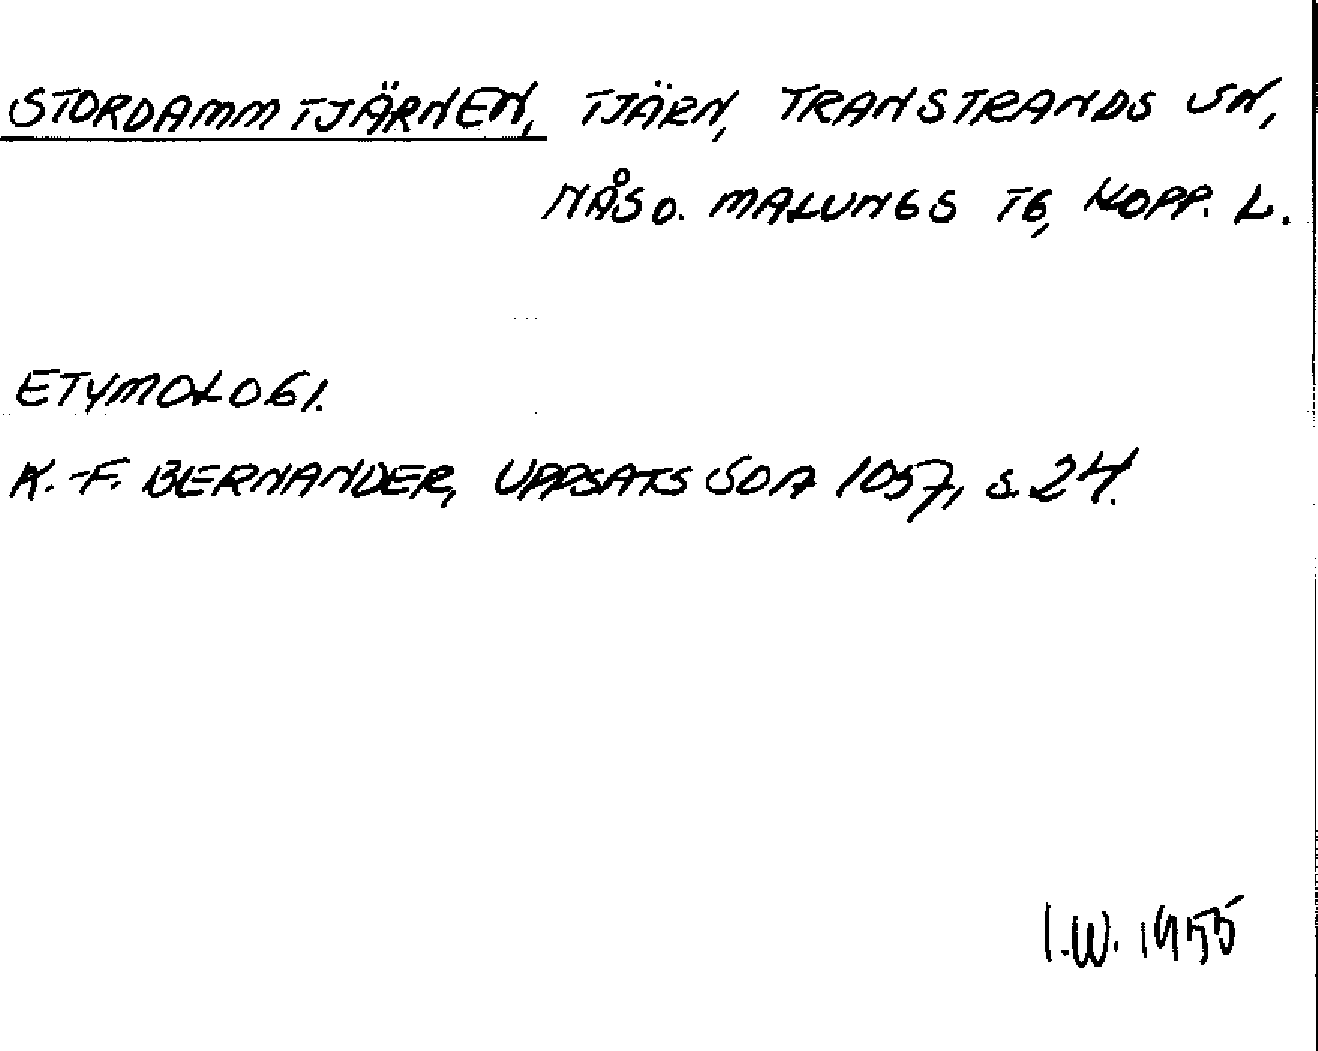 STORDAMMTJÄRNEN, TJÄRN, TRANSTRANDS SN,
NÅS O. MALUNGS TG, KOPP. L.
ETYMOLOGI.
K.-F. BERNANDER, UPPSATS SOA 1057, S. 24.
I.W. 1955